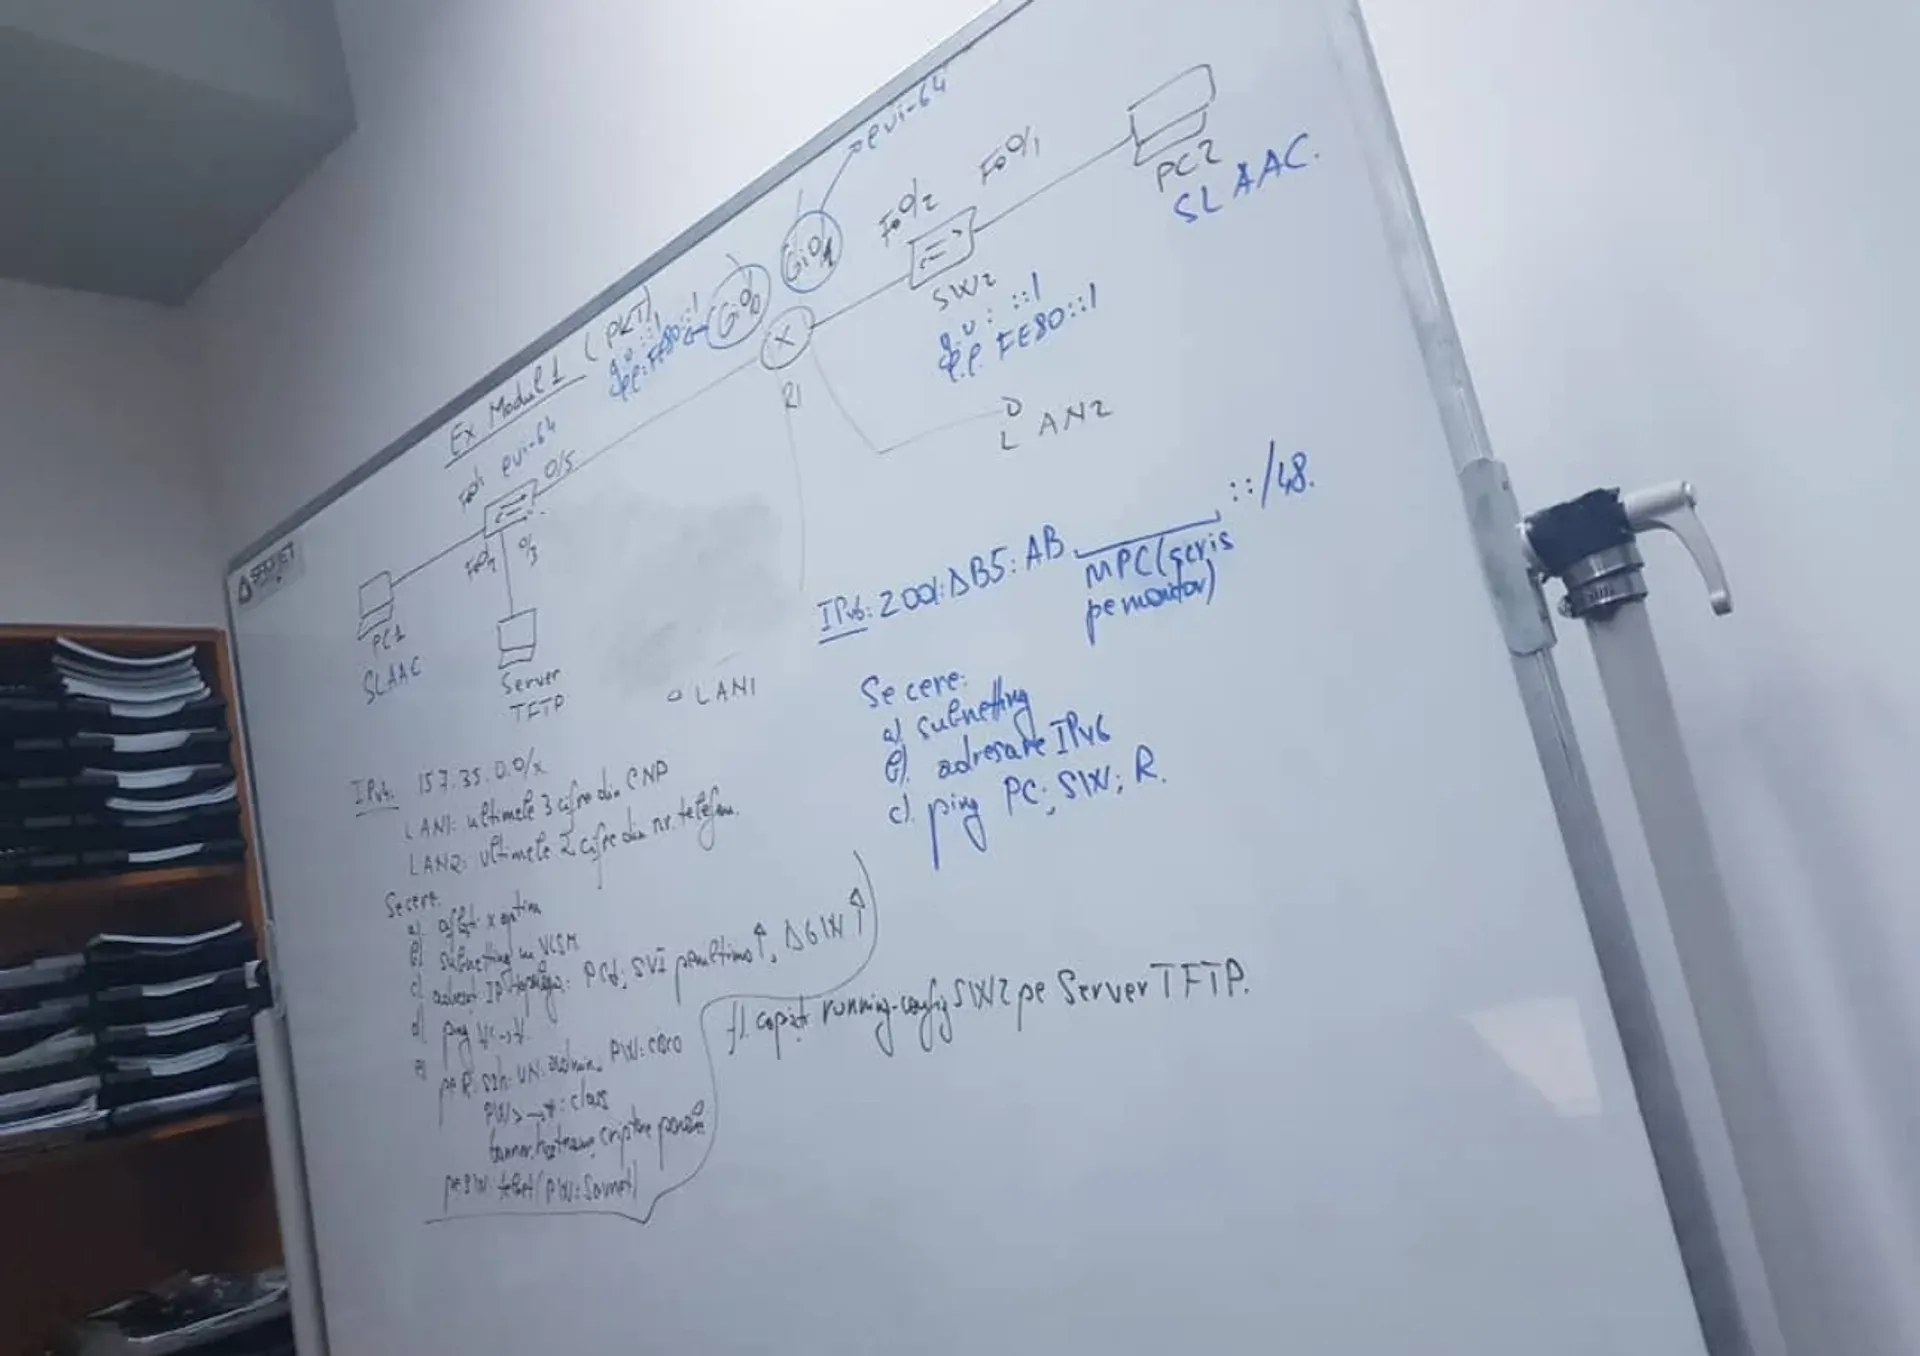 Ex Modul 1 (PKT)
eui-64
g.u: ::1
l.l: FE80::1
Gi0/0
Gi0/1
eui-64
Fa0/2
Fa0/1
PC2
SLAAC.
SW2
g.u: ::1
l.l. FE80::1
R1
LAN2
Fa0/1
0/5
0/3
PC1
SLAAC
Server
TFTP
LAN1
IPv6: 2001:DB5:AB ::/48.
MPC (scris
pe monitor)
Se cere:
a) subnetting
b). adresare IPv6
c). ping PC; SW; R.
IPv4: 157.35.0.0/x
LAN1: ultimele 3 cifre din CNP
LAN2: ultimele 2 cifre din nr. telefon.
Se cere:
a) aflat x optim
b) subnetting cu VLSM
c) IP PC1; SVI penultima↑, DGW↑
d) ping
e) pe R: ssh: UN: admin, PW: cisco
PW > → #: class
banner, hostname, criptare parole
pe SW: telnet (PW:
f). copiat running-config SW2 pe Server TFTP.